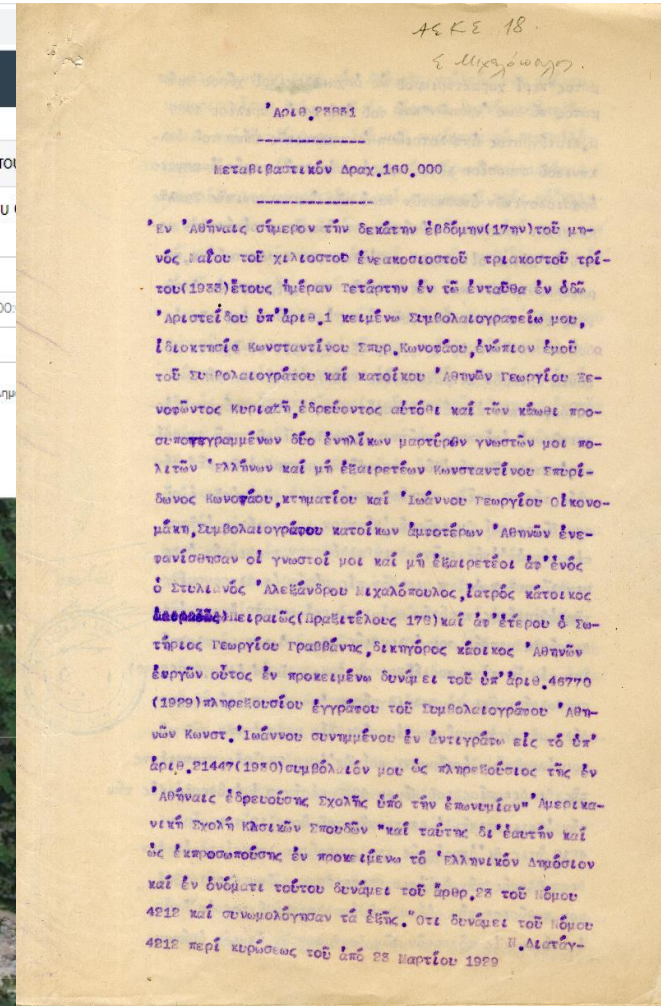 ΑΕΚΕ 18.
Σ. Μιχαλόπουλος.
'Αριθ.23831
Μεταβιβαστικόν Δραχ.160.000
'Εν 'Αθήναις σήμερον τήν δεκάτην ἑβδόμην(17ην)τοῦ μη-
νός Μαΐου τοῦ χιλιοστοῦ ἐνεακοσιοστοῦ τριακοστοῦ τρί-
του(1933)ἔτους ἡμέραν Τετάρτην ἐν τῶ ἐνταῦθα ἐν ὁδῶ
'Αριστείδου ὑπ'ἀριθ.1 κειμένω Συμβολαιογραφείω μου,
ἰδιοκτησία Κωνσταντίνου Σπυρ.Κωνοφάου,ἐνώπιον ἐμοῦ
τοῦ Συμβολαιογράφου καί κατοίκου 'Αθηνῶν Γεωργίου Ξε-
νοφῶντος Κυριακῆ,ἑδρεύοντος αὐτόθι καί τῶν κάωθι προ-
συπογεγραμμένων δύο ἐνηλίκων μαρτύρων γνωστῶν μοι πο-
λιτῶν 'Ελλήνων καί μή ἐξαιρετέων Κωνσταντίνου Σπυρί-
δωνος Κωνοφάου,κτηματίου καί 'Ιωάννου Γεωργίου Οἰκονο-
μάκη,Συμβολαιογράφου κατοίκων ἀμφοτέρων 'Αθηνῶν ἐνε-
φανίσθησαν οἱ γνωστοί μοι καί μή ἐξαιρετέοι ἀφ'ἑνός
ὁ Στυλιανός 'Αλεξάνδρου Μιχαλόπουλος,ἰατρός κάτοικος
Πειραιῶς(Πραξιτέλους 178)καί ἀφ'ἑτέρου ὁ Σω-
τήριος Γεωργίου Γραββάνης,δικηγόρος κάοικος 'Αθηνῶν
ἐνργῶν οὗτος ἐν προκειμένω δυνάμει τοῦ ὑπ'ἀριθ.46770
(1929)πληρεξουσίου ἐγγράφου τοῦ Συμβολαιογράφου 'Αθη-
νῶν Κωνστ.'Ιωάννου συνημμένου ἐν ἀντιγράφω εἰς τό ὑπ'
ἀριθ.21447(1930)συμβόλαιόν μου ὡς πληρεξούσιος τῆς ἐν
'Αθήναις ἑδρευούσης Σχολῆς ὑπό τήν ἐπωνυμίαν"'Αμερικα-
νική Σχολή Κλσικῶν Σπουδῶν "καί ταύτης δι'ἑαυτήν καί
ὡς ἐκπροσωπούσης ἐν προκειμένω τό 'Ελληνικόν Δημόσιον
καί ἐν ὀνόματι τούτου δυνάμει τοῦ ἄρθρ.23 τοῦ Νόμου
4212 καί συνωμολόγησαν τά ἑξῆς."Οτι δυνάμει τοῦ Νόμου
4212 περί κυρώσεως τοῦ ἀπό 23 Μαρτίου 1929 Ν.Διατάγ-